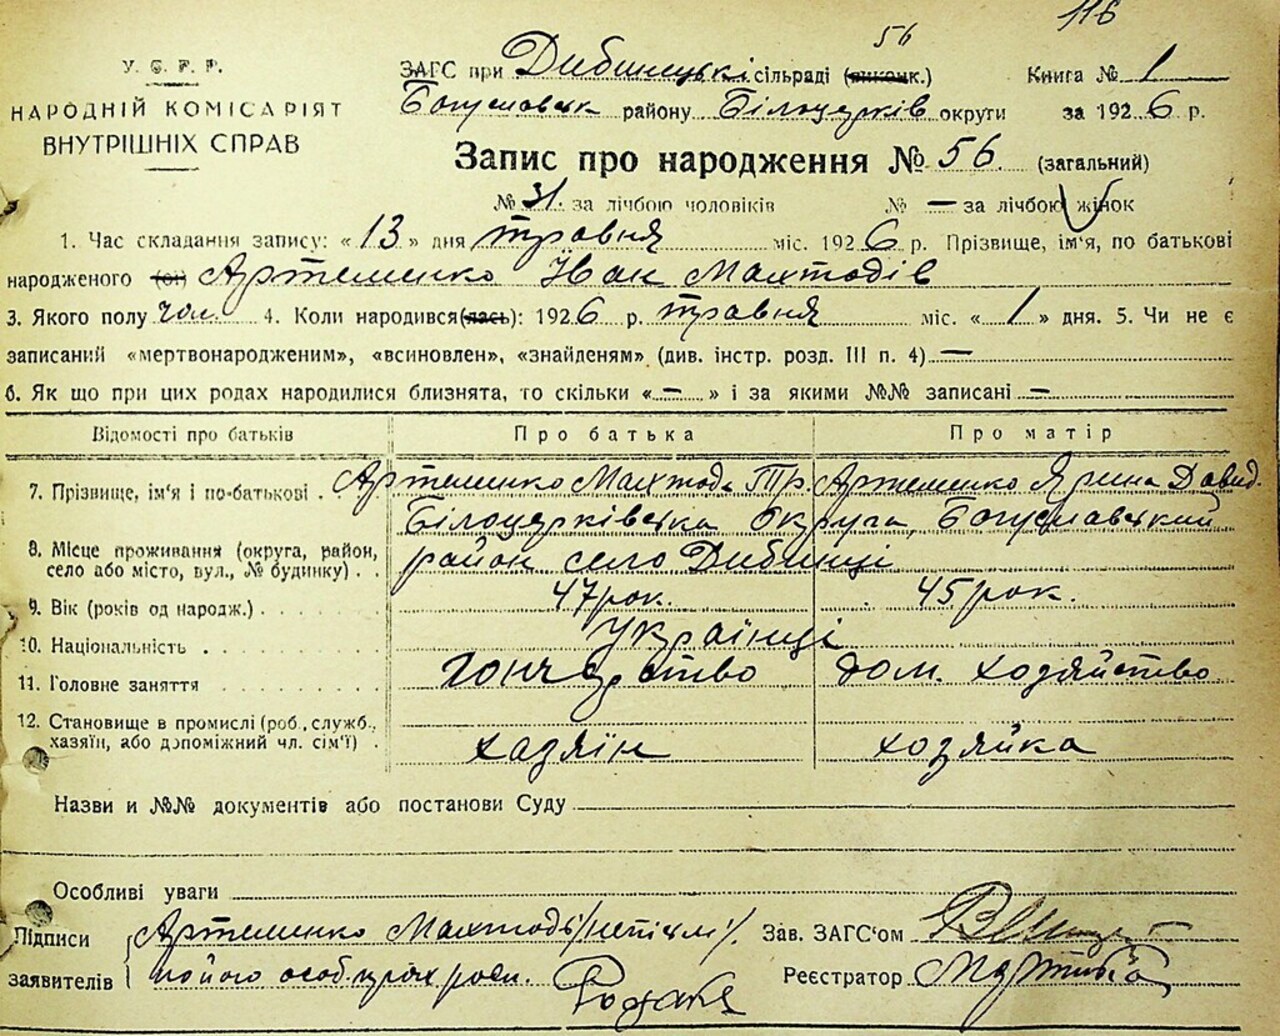 116
56
У. С. Р. Р.
НАРОДНІЙ КОМІСАРІЯТ
ВНУТРІШНІХ СПРАВ
ЗАГС при Дибинецькі сільраді (виконк.) Книга № 1
Богуславськ району Білоцерків округи за 1926 р.
Запис про народження № 56. (загальний)
№ 31. за лічбою чоловіків № — за лічбою жінок
1. Час складання запису: « 13 » дня травня міс. 1926 р. Прізвище, ім'я, по батькові
народженого (ої) Артеменко Іван Махтодів
3. Якого полу чол. 4. Коли народився(лась): 1926 р. травня міс. « 1 » дня. 5. Чи не є
записаний «мертвонародженим», «всиновлен», «знайденям» (див. інстр. розд. III п. 4) —
6. Як що при цих родах народилися близнята, то скільки « — » і за якими №№ записані —
Відомості про батьків Про батька Про матір
7. Прізвище, ім'я і по-батькові . Артеменко Махтод Тр. Артеменко Ярина Давид.
Білоцерківська округа, Богуславський
8. Місце проживання (округа, район,
село або місто, вул., № будинку) . . район село Дибинці
9. Вік (років од народж.) 47 рок. 45 рок.
10. Національність Українці
11. Головне заняття гончарство дом. хозяйство
12. Становище в промислі (роб., служб.,
хазяїн, або допоміжний чл. сім'ї) . хазяїн хозяйка
Назви и №№ документів або постанови Суду
Особливі уваги
Підписи Артеменко Махтоді /непісьм/. Зав. ЗАГС'ом
заявителів по його особ. Реєстратор